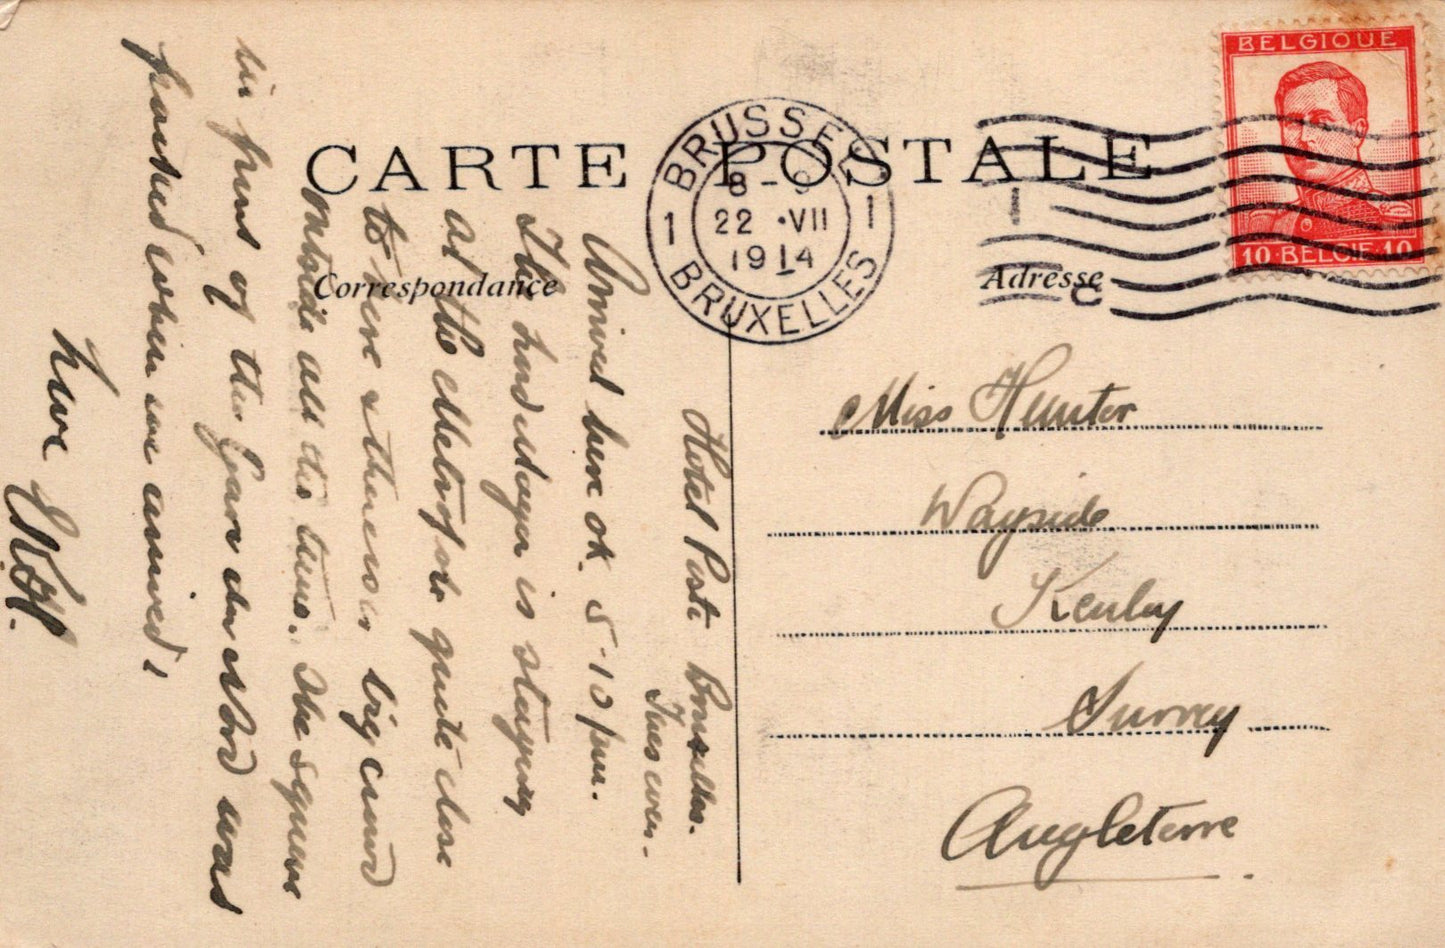 CARTE POSTALE
Correspondance
Adresse
BELGIQUE
10 BELGIË 10
BRUSSEL
1 1
8-9
22 VII
1914
BRUXELLES
Hotel Poste Bruxelles.
Tues even.
Arrived here ok. 5-10 pm.
The lord Mayor is staying
at the Metropole quite close
to here & there is a big crowd
outside all the time. The square
in front of the Gare du Nord was
packed when we arrived!
Love
Miss Hunter
Wayside
Kenley
Surrey
Angleterre